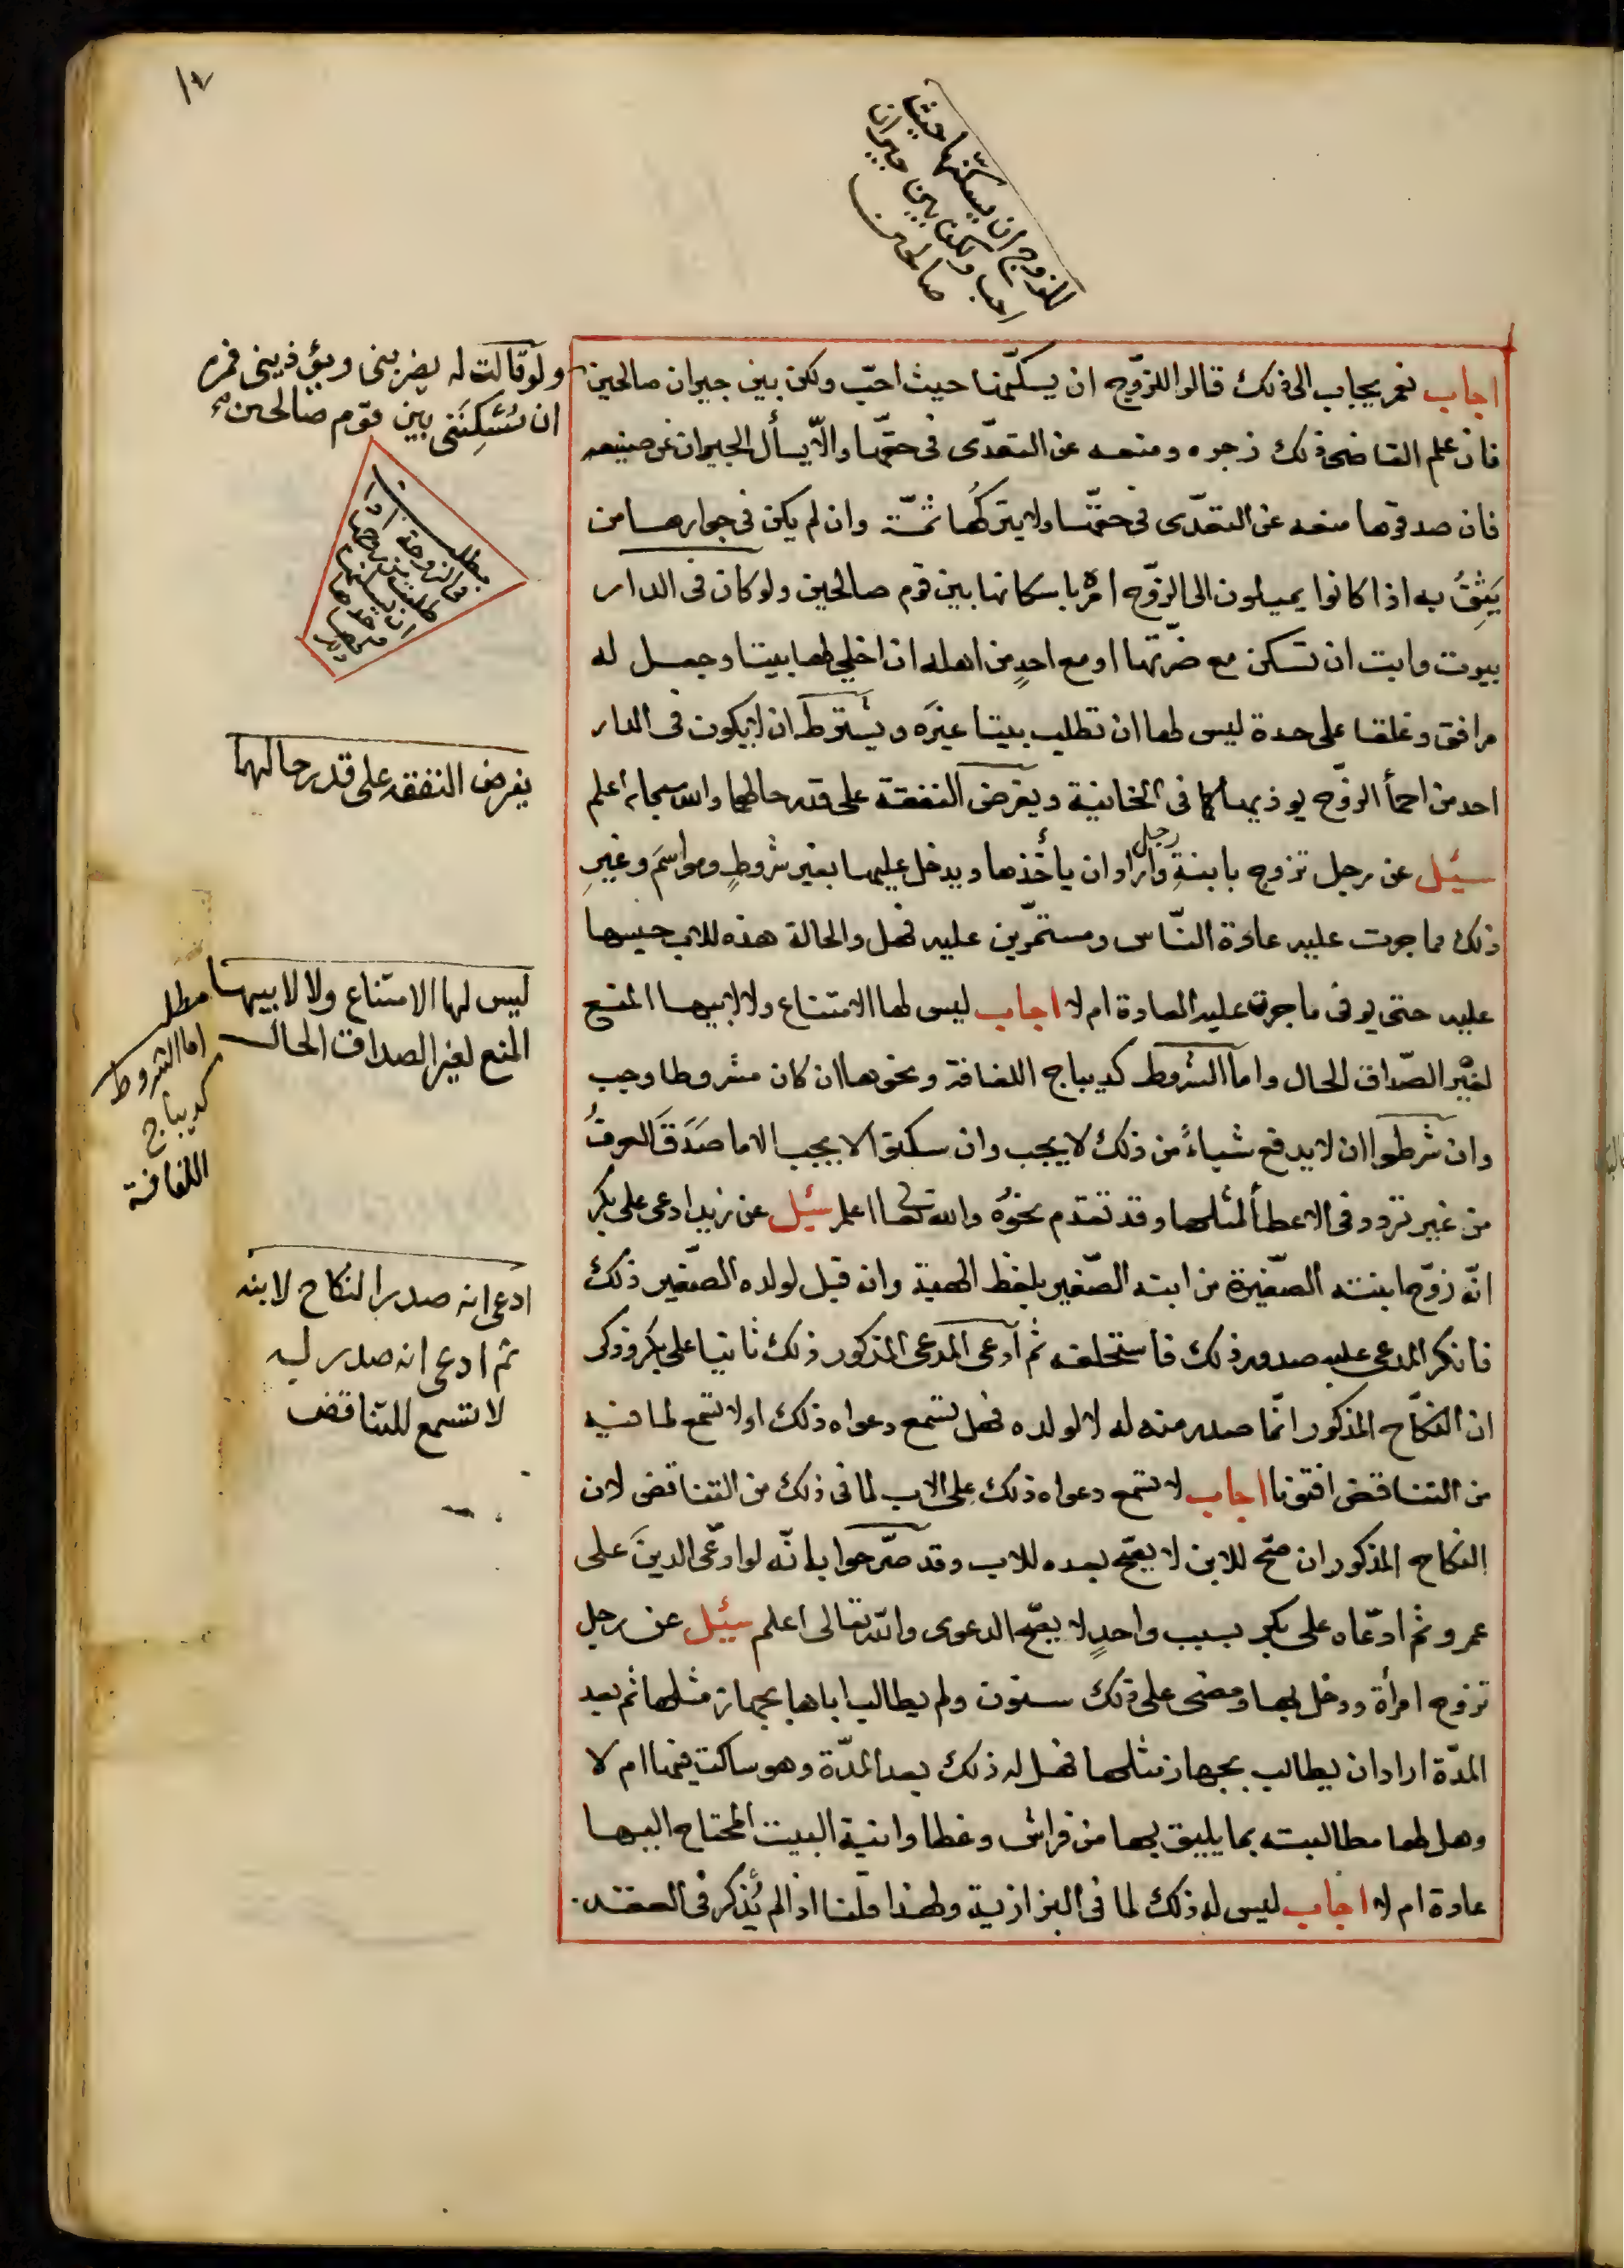 ١٧
للزوج ان يسكنها حيث
احب ولكن بين جيران
صالحين
اجاب نعم يجاب الى ذلك قالوا للزّوج ان يسكّنها حيث احبّ ولكن بين جيران صالحين
ولو قالت له يضربنى ويؤذينى فمره
ان يُسْكِنَنى بين قوم صالحين صح
فان علم القاضى ذلك زجره ومنعه عن التعدّى فى حقّها والّا يسأل الجيران عن صنيعه
فان صدقوها منعه عن التعدّى فى حقّها ولا يتركُها ثمّة وان لم يكن فى جوارها من
يَثِقُ به اذا كانوا يميلون الى الزّوج امرُه باسكانها بين قوم صالحين ولو كان فى الدار
بيوت وابت ان تسكن مع ضرّتها او مع احدٍ من اهله ان اخلى لها بيتا وجعل له
مرافق وغلقا على حدة ليس لها ان تطلب بيتا غيرَه ويشترط ان لا يكون فى الدار
احد من احمأ الزوّج يوذيها كما فى الخانية ويفرض النفقة على قدر حالهما والله سبحانه اعلم
سئيل عن رجل تزوج بابنةِ رجل واراد ان يأخذها ويدخل عليها بغير شروطٍ ومواسمَ وغيرِ
ذلك مما جرت عليه عادة النّاس ومستمّرين عليه فهل والحالة هذه للاب حبسها
عليه حتى يوفى ما جرت عليه العادة ام لا اجاب ليس لها الامتناع ولا لابيها المنع
لغَيْر الصّداق الحال واما الشروط كديباج اللفافة ونحوها ان كان مشروطا وجب
وان شرطوا ان لا يدفع شياءً من ذلك لا يجب وان سكتوا لا يجب الا ما صَدَقَ العرفُ
من غير تردد فى الاعطأ لمثلها وقد تقدم نحوُه والله تعالى اعلم سئيل عن زيد ادعى على بكر
انّه زوّجه ابنته الصّغيرة من ابنه الصّغير بلفظ الهبة وانه قبل لولده الصّغير ذلك
فانكر المدعى عليه صدور ذلك فاستحلفه ثم ادعى المدعى المذكور ذلك ثانيا على بكر وذكر
ان النكاح المذكور انّما صدر منه له لا لولده فهل تسمع دعواه ذلك او لا تسمع لما فيه
من التناقض افتونا اجاب لا تسمع دعواه ذلك على الاب لما فى ذلك من التناقض لان
النكاح المذكور ان صّح للابن لا يصّح بعده للاب وقد صّرحوا بانّه لو ادّعى الدينَ على
عمرو ثم ادّعاه على بكر بسبب واحدٍ لا يصّح الدعوى والله تعالى اعلم سئيل عن رجل
تزوج امرأة ودخل بها ومضى على ذلك سنون ولم يطالب اباها بجهاز مثلها ثم بعد
المدّة اراد ان يطالب بجهاز مثلها فهل له ذلك بعد المدّة وهو ساكت فيها ام لا
وهل لها مطالبته بما يليق بها من فراش وغطا وانية البيت المحتاج اليها
عادة ام لا اجاب ليس له ذلك لما فى البزازية ولهذا قلنا اذا لم يُذكر فى العقد
يفرض النفقه على قدر حالهما
ليس لها الامتناع ولا لابيها
المنع لغير الصداق الحال
مطلب
اما الشروط
كديباج
اللفافة
ادعى انه صدر النكاح لابنه
ثم ادعى انه صدر له
لا تسمع للتناقض